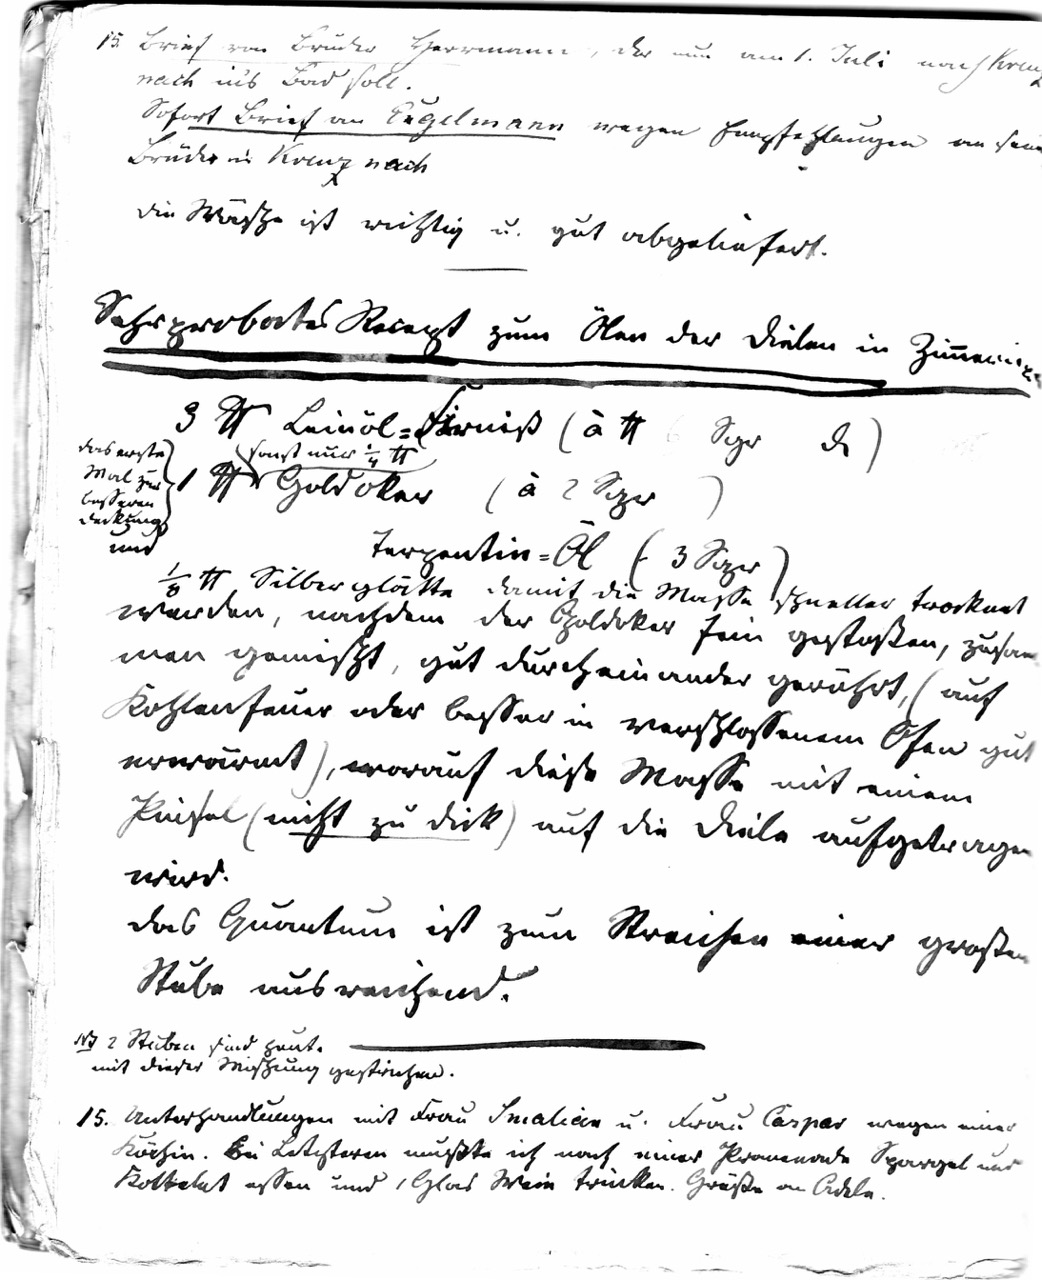 15. Brief von Bruder Herrmann, der nun am 1. Juli nach Kreuz
nach in's Bad soll.
Sofort Brief an Kugelmann wegen Empfehlungen an seinen
Bruder in Kreuznach
Die Wäsche ist richtig u. gut abgeliefert.
Sehr probates Recept zum Ölen der Dielen in Zimmern
3 ℔ Leinöl=Firniß (à ℔ 6 Sgr d)
(sonst nur 1/4 ℔
das erste
Mal zur
besseren
Deckung
1 ℔ Goldoker (à 2 Sgr)
und Terpentin=Öl (3 Sgr)
1/8 ℔ Silberglätte damit die Masse schneller trocknet
werden, nachdem der Goldoker fein gestoßen, zusam
men gemischt, gut durcheinander gerührt, (auf
Kohlenfeuer oder besser in verschlossenem Ofen gut
erwärmt), worauf diese Masse mit einem
Pinsel (nicht zu dick) auf die Diele aufgetragen
wird.
Das Quantum ist zum Streichen einer großen
Stube ausreichend.
NB 2 Stuben sind heute
mit dieser Mischung gestrichen.
15. Unterhandlungen mit Frau Smalian u. Frau Caspar wegen einer
Köchin. Bei Letzteren mußte ich nach einer Promenade Spargel und
Kottelet essen und 1 Glas Wein trinken. Grüße an Adele.